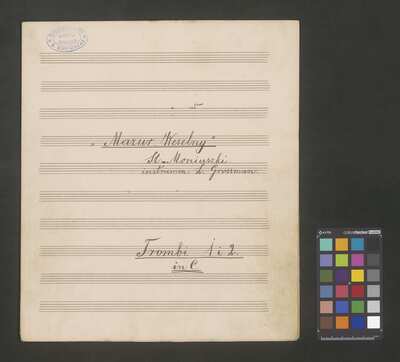 „Mazur Weselny"
St. Moniuszki
instrumen. L. Grossman.
Trombi 1 i 2.
in C.